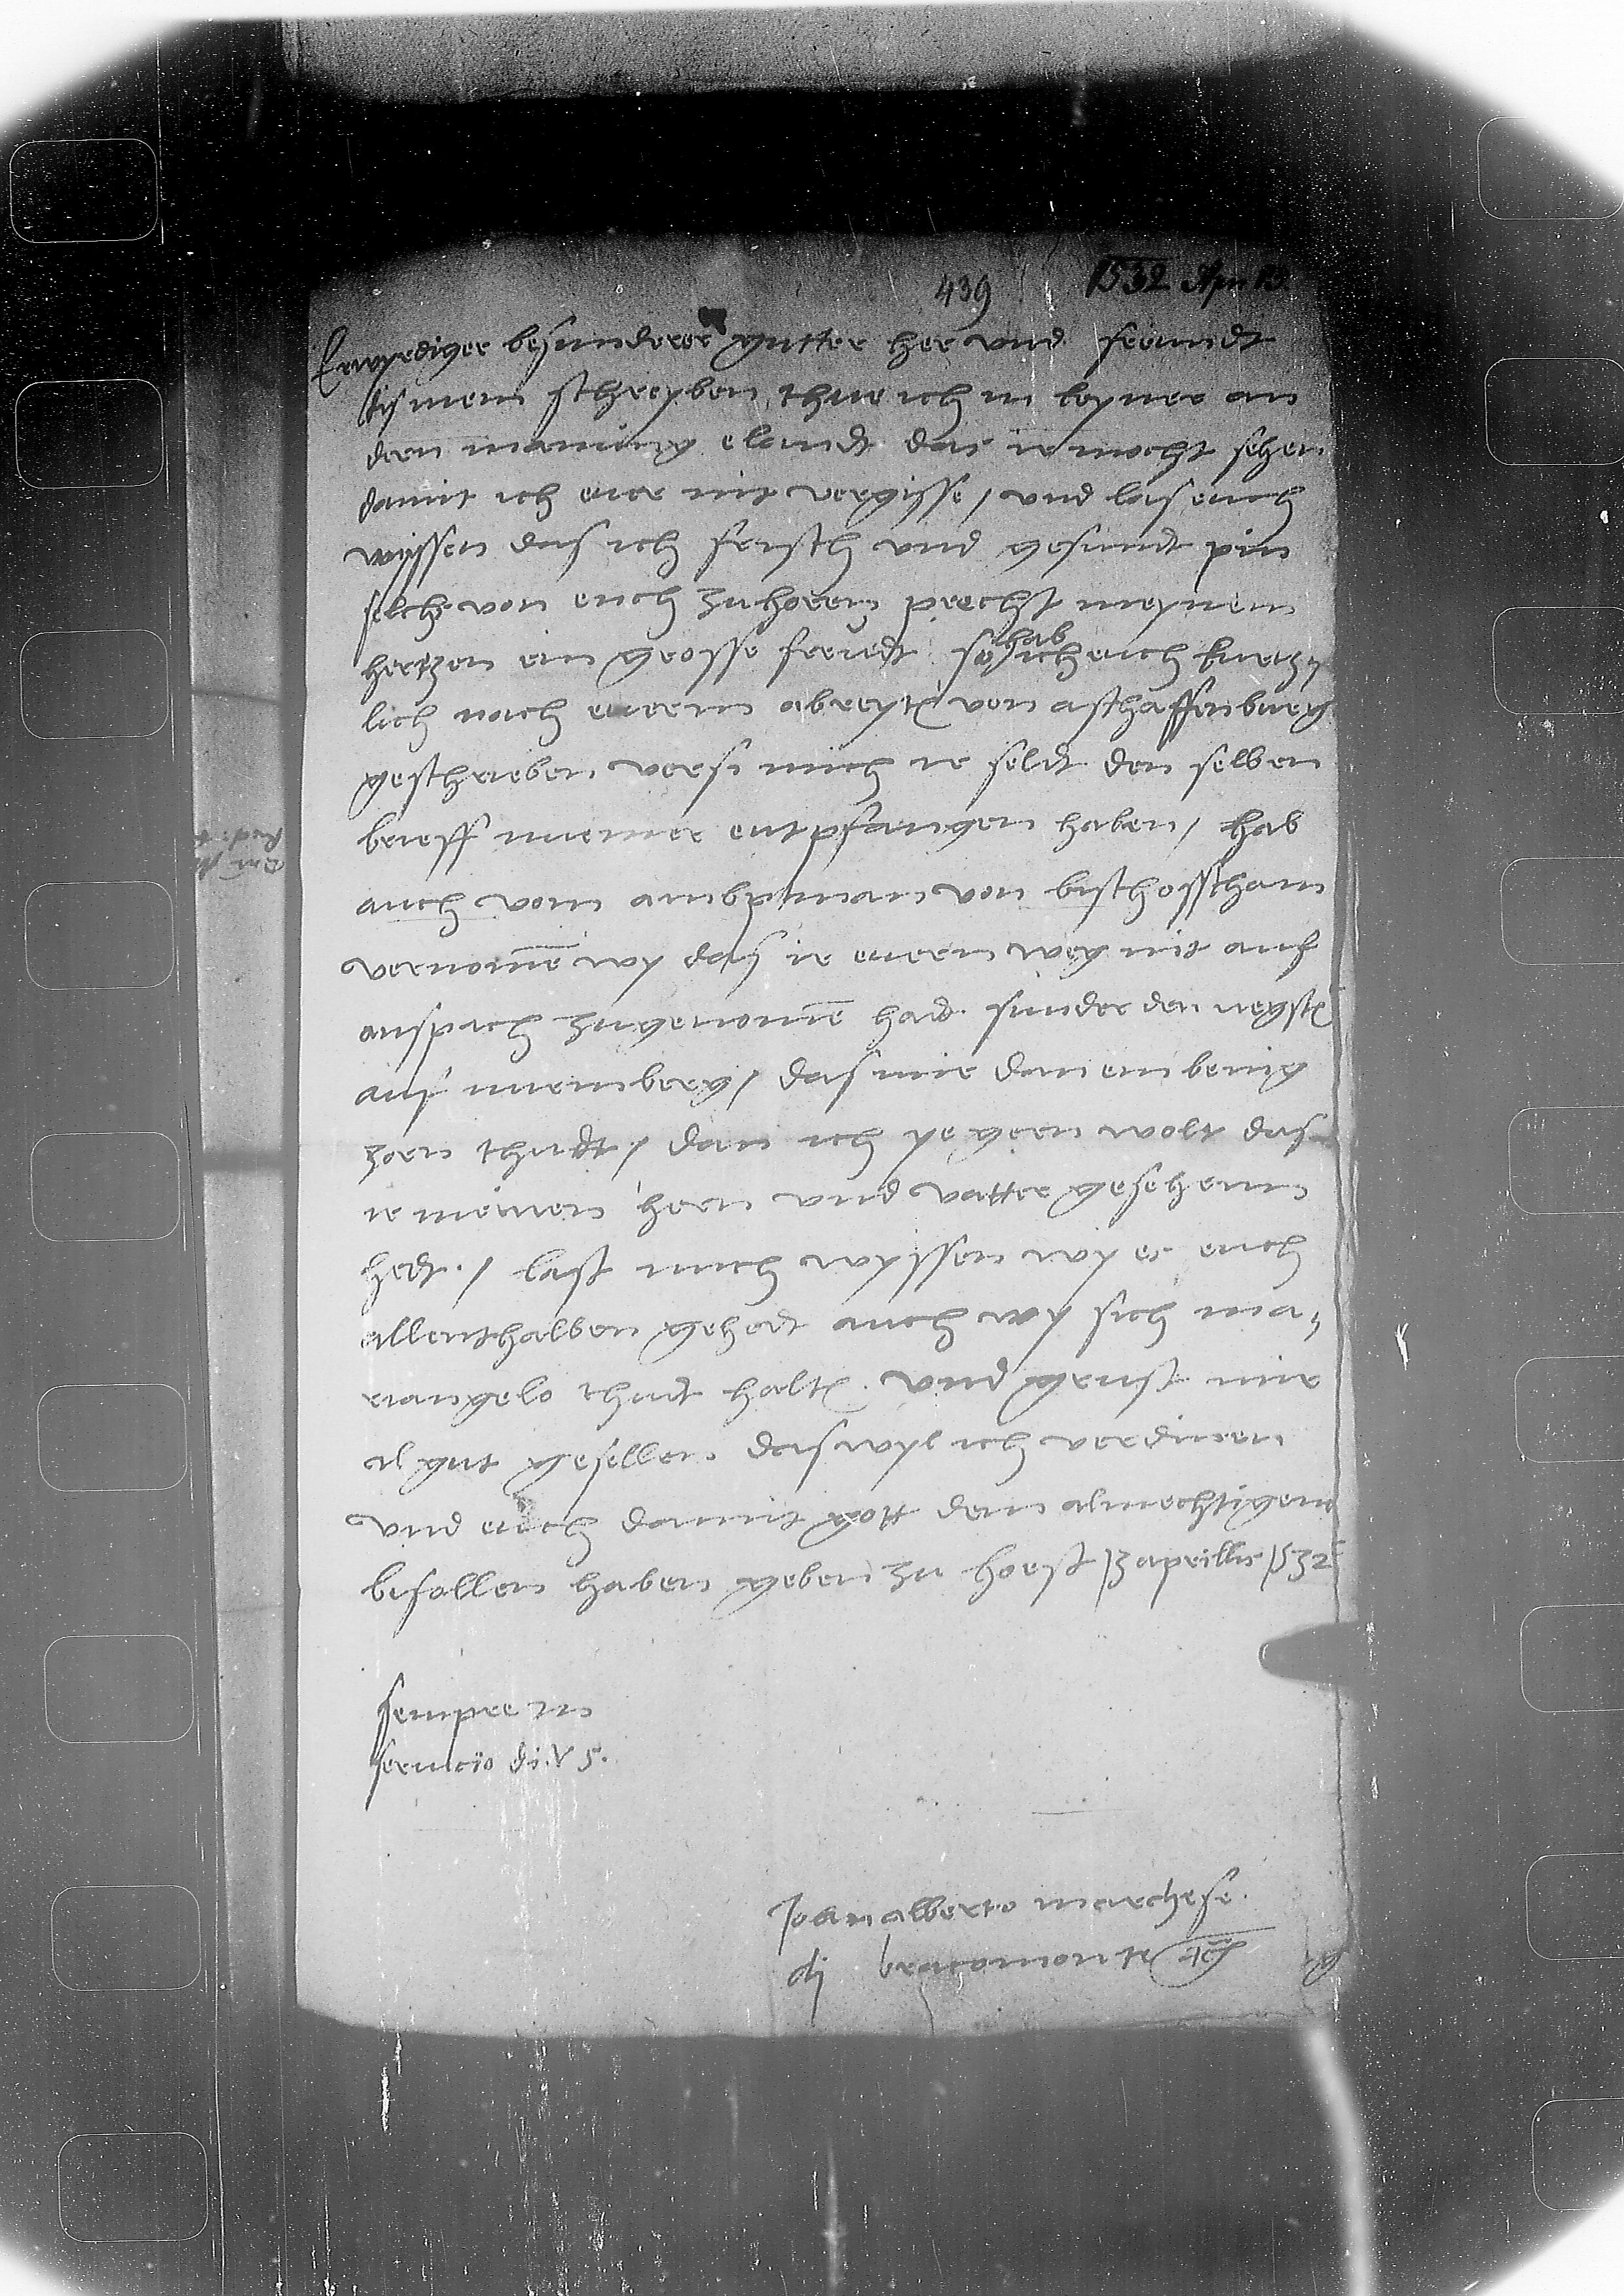 439 1532 Apr 13.
Erwyrdiger besunderer gutter her und freundt
dis mein schreyben thue ich in keyner an
dern mainung alandt das ir mocht sehen
damit ich euer nit vergisse / und las euch
wyssen das ich frisch und gesundt pin
selchs von euch zu horen precht meynem
hertzen ein grosse freudt so hab ich euch kurtz
lich nach eurem abreyten von aschaffenburg
geschrieben versi mich ir seldt den selben
brieff nuemer entpfangen haben / hab
auch vom ambptman von bischoffscham
vernomē wy das ir euern weg nit auf
anspach zugenomē habd. sunder den negsten
auf nuernberg / das mir dan ein benig
zorn thudt / dan ich ye gern wolt das
ir meinen hern und vatter gesehenn
hedt. / last mich wyssen wy es euch
allenthalben gehedt auch wy sich ma,
riangelo thudt halten. und grust mir
al gut gesellen. das wyl ich verdinen
und euch damit gott dem almechtigenn
befollen haben geben zu hoest 13 aprillis 1532
sempre in
servicio di. V S.
Joan alberto marchese.
di brancomonte